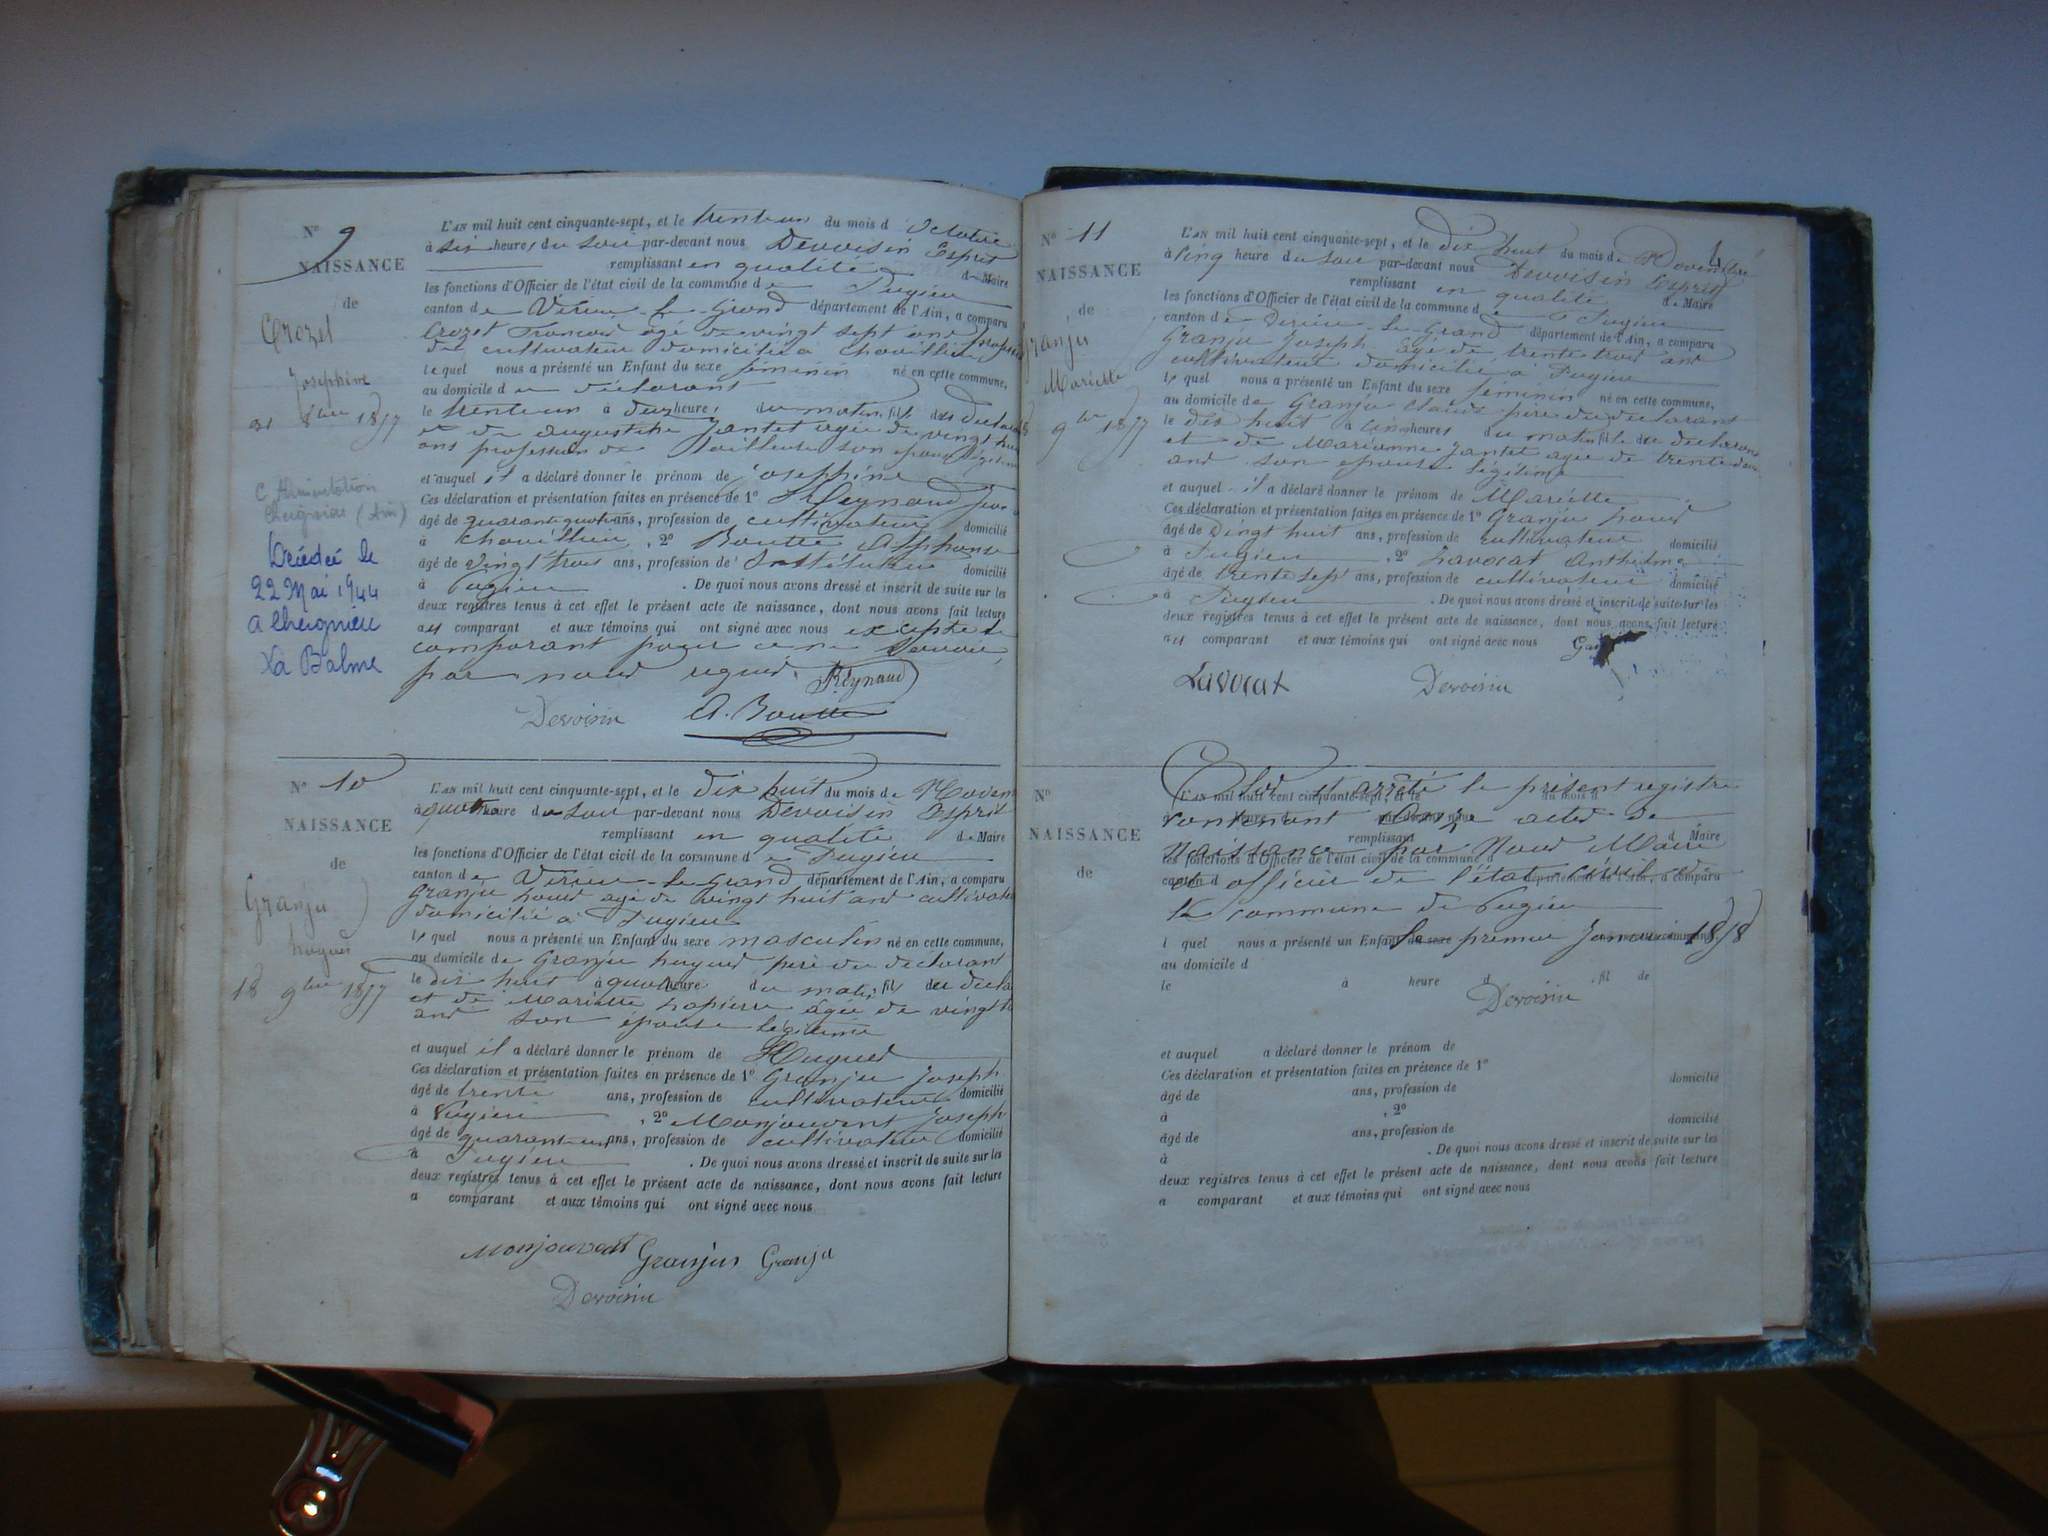 N° 9
NAISSANCE
de
Crozet
Joséphine
31 8bre 1857
Décédée le
22 Mai 1944
à Cheignieu
La Balme
L'AN mil huit cent cinquante-sept, et le trente un du mois d Octobre
à six heures du soir par-devant nous Devoisin Esprit
remplissant en qualité de Maire
les fonctions d'Officier de l'état civil de la commune de Pugieu
canton de Virieu-le-Grand département de l'Ain, a comparu
Crozet François agé de vingt sept ans profession
de cultivateur domicilié à Chavillieu
lequel nous a présenté un Enfant du sexe féminin né en cette commune,
au domicile du déclarant
le trente un à deux heures du matin fil du déclarant
et de augustine Jantet agée de vingt huit
ans profession de tailleuse son épouse légitime
et auquel il a déclaré donner le prénom de Joséphine
Ces déclaration et présentation faites en présence de 1° Reynaud
âgé de quarante quatre ans, profession de cultivateur domicilié
à Chavillieu, 2° Boutte Alphonse
âgé de vingt trois ans, profession d'Instituteur domicilié
à Pugieu. De quoi nous avons dressé et inscrit de suite sur les
deux registres tenus à cet effet le présent acte de naissance, dont nous avons fait lecture
au comparant et aux témoins qui ont signé avec nous excepté le
comparant pour ce ne savoir
par nous requis. Reynaud
Devoisin A. Boutte
N° 10
NAISSANCE
de
Granju
hugues
18 9bre 1857
L'AN mil huit cent cinquante-sept, et le dix huit du mois de Novem
à quatre heure du soir par-devant nous Devoisin Esprit
remplissant en qualité de Maire
les fonctions d'Officier de l'état civil de la commune de Pugieu
canton de Virieu-le-Grand département de l'Ain, a comparu
Granju Louis agé de vingt huit ans cultivateur
domicilié à Pugieu
lequel nous a présenté un Enfant du sexe masculin né en cette commune,
au domicile de Granju hugues père du déclarant
le dix huit à quatre heure du matin fil du décla
et de Mariette Lapierre âgée de vingt
ans son épouse légitime
et auquel il a déclaré donner le prénom de Hugues
Ces déclaration et présentation faites en présence de 1° Granju Joseph
âgé de trente ans, profession de cultivateur domicilié
à Pugieu, 2° Monjouvent Joseph
âgé de quarante un ans, profession de cultivateur domicilié
à Pugieu. De quoi nous avons dressé et inscrit de suite sur les
deux registres tenus à cet effet le présent acte de naissance, dont nous avons fait lecture
a comparant et aux témoins qui ont signé avec nous
Monjouvent Granju Granju
Devoisin
4
N° 11
NAISSANCE
de
Granju
Mariette
9bre 1857
L'AN mil huit cent cinquante-sept, et le dix huit du mois de Novembre
à cinq heure du soir par-devant nous Devoisin Esprit
remplissant en qualité de Maire
les fonctions d'Officier de l'état civil de la commune de Pugieu
canton de Virieu-le-Grand département de l'Ain, a comparu
Granju Joseph agé de trente trois ans
cultivateur domicilié à Pugieu
lequel nous a présenté un Enfant du sexe féminin né en cette commune,
au domicile de Granju Claude père du déclarant
le dix huit à cinq heures du matin fil du déclarant
et de Marianne Jantet agée de trente deux
ans son épouse légitime
et auquel il a déclaré donner le prénom de Mariette
Ces déclaration et présentation faites en présence de 1° Granju Louis
âgé de vingt huit ans, profession de cultivateur domicilié
à Pugieu, 2° Lavocat Anthelme
âgé de trente sept ans, profession de cultivateur domicilié
à Pugieu. De quoi nous avons dressé et inscrit de suite sur les
deux registres tenus à cet effet le présent acte de naissance, dont nous avons fait lecture
au comparant et aux témoins qui ont signé avec nous
Lavocat Devoisin
N°
NAISSANCE
de
Clos et arrêté le présent registre
L'AN mil huit cent cinquante-sept, et le du mois d
contenant onze actes de
remplissant d Maire
Naissance par Nous Maire
les fonctions d'Officier de l'état civil de la commune d
canton d département de l'Ain, a comparu
et officier de l'état civil de
la commune de Pugieu
l quel nous a présenté un Enfant du sexe né en cette commune,
le premier Janvier 1858
au domicile d
le à heure d fil de
Devoisin
et auquel a déclaré donner le prénom de
Ces déclaration et présentation faites en présence de 1°
domicilié
âgé de ans, profession de
à , 2°
âgé de ans, profession de domicilié
à . De quoi nous avons dressé et inscrit de suite sur les
deux registres tenus à cet effet le présent acte de naissance, dont nous avons fait lecture
a comparant et aux témoins qui ont signé avec nous